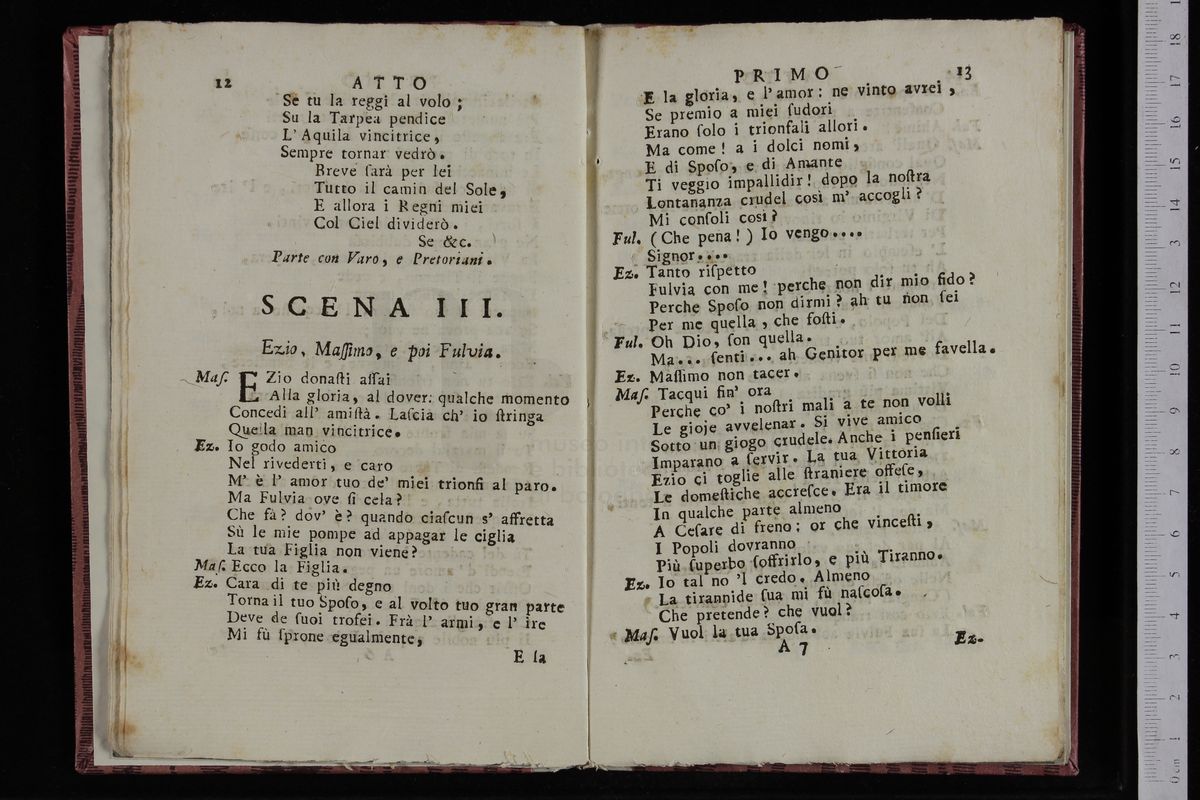 12 ATTO
Se tu la reggi al volo;
Su la Tarpea pendice
L' Aquila vincitrice,
Sempre tornar vedrò.
Breve ſarà per lei
Tutto il camin del Sole,
E allora i Regni miei
Col Ciel dividerò.
Se &c.
Parte con Varo, e Pretoriani.
SCENA III.
Ezio, Maſſimo, e poi Fulvia.
Maſ. EZio donaſti aſſai
Alla gloria, al dover: qualche momento
Concedi all' amiſtà. Laſcia ch' io ſtringa
Quella man vincitrice.
Ez. Io godo amico
Nel rivederti, e caro
M' è l' amor tuo de' miei trionfi al paro.
Ma Fulvia ove ſi cela?
Che fà? dov' è? quando ciaſcun s' affretta
Sù le mie pompe ad appagar le ciglia
La tua Figlia non viene?
Maſ. Ecco la Figlia.
Ez. Cara di te più degno
Torna il tuo Spoſo, e al volto tuo gran parte
Deve de ſuoi trofei. Frà l' armi, e l' ire
Mi fù ſprone egualmente,
E la
PRIMO 13
E la gloria, e l' amor: ne vinto avrei,
Se premio a miei ſudori
Erano ſolo i trionfali allori.
Ma come! a i dolci nomi,
E di Spoſo, e di Amante
Ti veggio impallidir! dopo la noſtra
Lontananza crudel così m' accogli?
Mi conſoli così?
Ful. (Che pena!) Io vengo....
Signor....
Ez. Tanto riſpetto
Fulvia con me! perche non dir mio fido?
Perche Spoſo non dirmi? ah tu non ſei
Per me quella, che foſti.
Ful. Oh Dio, ſon quella.
Ma... ſenti... ah Genitor per me favella.
Ez. Maſſimo non tacer.
Maſ. Tacqui fin' ora
Perche co' i noſtri mali a te non volli
Le gioje avvelenar. Si vive amico
Sotto un giogo crudele. Anche i penſieri
Imparano a ſervir. La tua Vittoria
Ezio ci toglie alle ſtraniere offeſe,
Le domeſtiche accreſce. Era il timore
In qualche parte almeno
A Ceſare di freno: or che vinceſti,
I Popoli dovranno
Più ſuperbo ſoffrirlo, e più Tiranno.
Ez. Io tal no 'l credo. Almeno
La tirannide ſua mi fù naſcoſa.
Che pretende? che vuol?
Maſ. Vuol la tua Spoſa.
A 7 Ez-